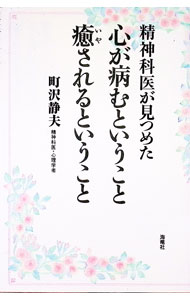 精神科医が見つめた
心が病むということ
癒されるということ
いや
町沢静夫
精神科医・心理学者
海竜社